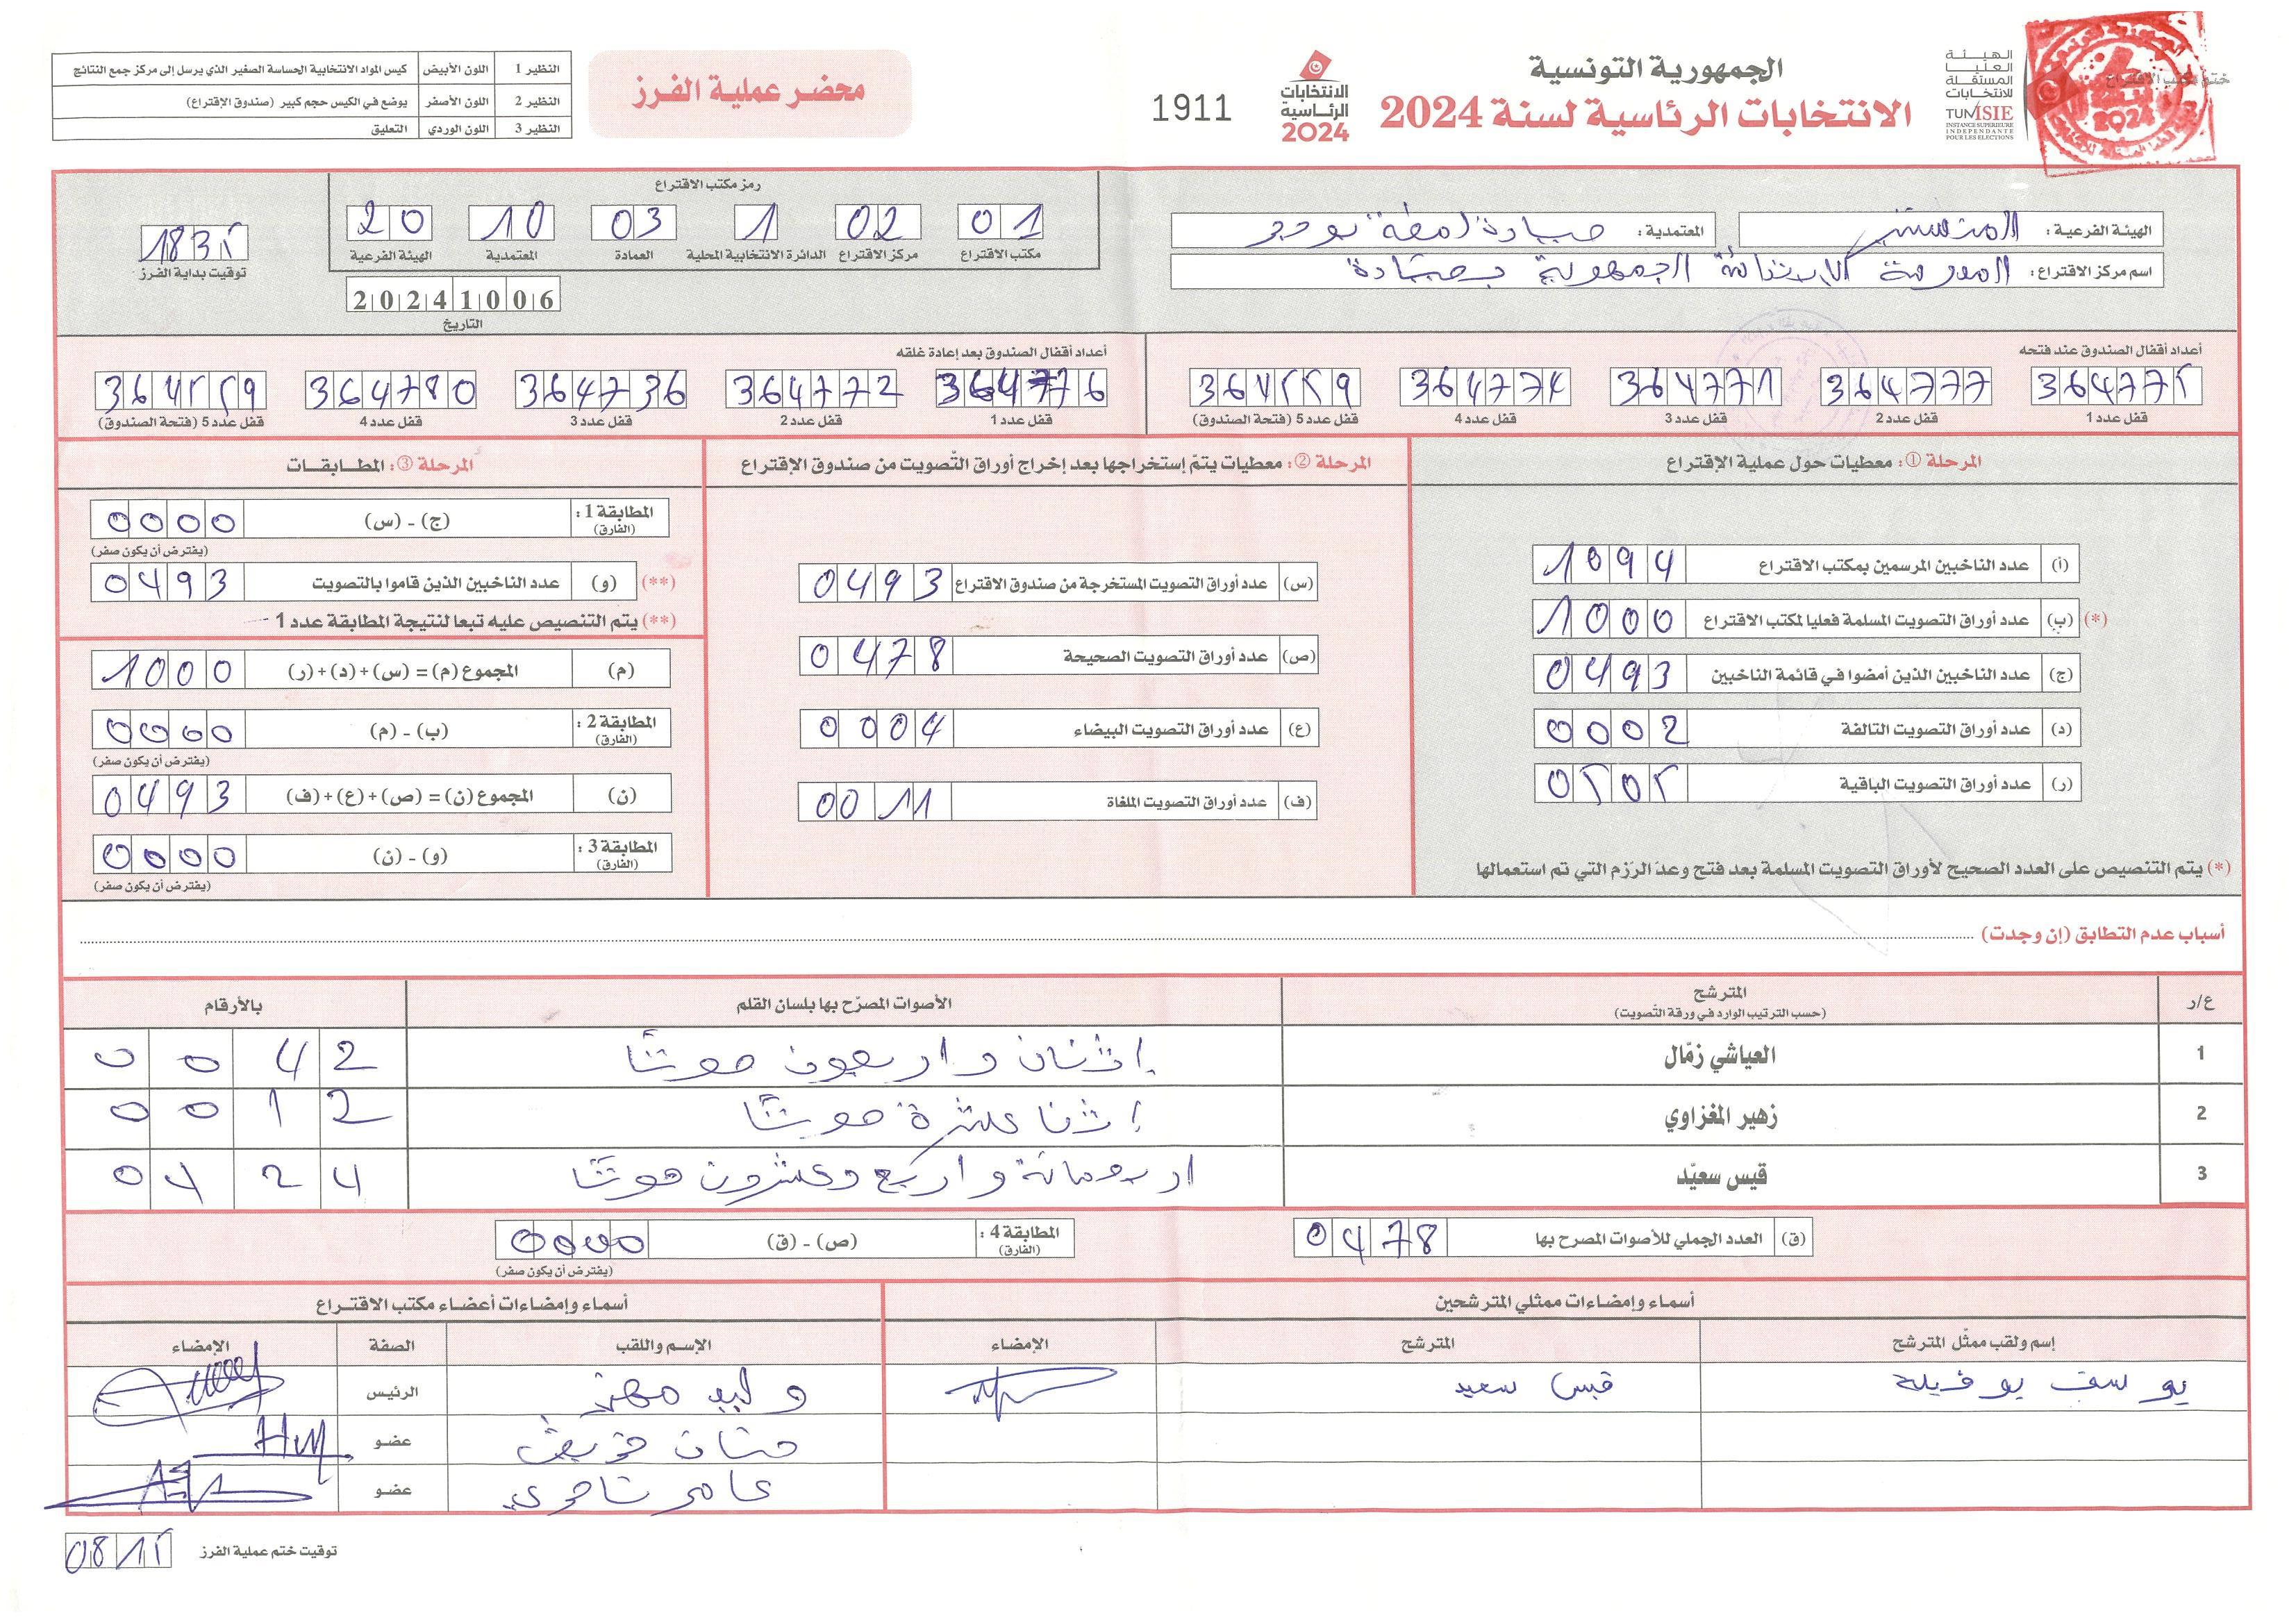 الجمهورية التونسية
الانتخابات الرئاسية لسنة 2024
الهيئة العليا المستقلة للانتخابات
TUNISIE
INSTANCE SUPERIEURE
INDEPENDANTE
POUR LES ELECTIONS
ختم مكتب الاقتراع
الانتخابات الرئاسية 2024
1911
محضر عملية الفرز
النظير 1 اللون الأبيض كيس المواد الانتخابية الحساسة الصغير الذي يرسل إلى مركز جمع النتائج
النظير 2 اللون الأصفر يوضع في الكيس حجم كبير (صندوق الإقتراع)
النظير 3 اللون الوردي التعليق
الهيئة الفرعية: المنستير
المعتمدية: صيادة لمطة بوحجر
اسم مركز الاقتراع: المدرسة الابتدائية الجمهورية بصيادة
رمز مكتب الاقتراع
01 مكتب الاقتراع
02 مركز الاقتراع
1 الدائرة الانتخابية المحلية
03 العمادة
10 المعتمدية
20 الهيئة الفرعية
20241006
التاريخ
1835
توقيت بداية الفرز
أعداد أقفال الصندوق عند فتحه
364775 قفل عدد 1
364777 قفل عدد 2
364771 قفل عدد 3
364774 قفل عدد 4
364559 قفل عدد 5 (فتحة الصندوق)
أعداد أقفال الصندوق بعد إعادة غلقه
364776 قفل عدد 1
364772 قفل عدد 2
364736 قفل عدد 3
364780 قفل عدد 4
364559 قفل عدد 5 (فتحة الصندوق)
المرحلة ①: معطيات حول عملية الإقتراع
(أ) عدد الناخبين المرسمين بمكتب الاقتراع 1094
(*) (ب) عدد أوراق التصويت المسلمة فعليا لمكتب الاقتراع 1000
(ج) عدد الناخبين الذين أمضوا في قائمة الناخبين 0493
(د) عدد أوراق التصويت التالفة 0002
(ر) عدد أوراق التصويت الباقية 0505
(*) يتم التنصيص على العدد الصحيح لأوراق التصويت المسلمة بعد فتح وعدّ الرّزم التي تم استعمالها
المرحلة ②: معطيات يتمّ إستخراجها بعد إخراج أوراق التّصويت من صندوق الإقتراع
(س) عدد أوراق التصويت المستخرجة من صندوق الاقتراع 0493
(ص) عدد أوراق التصويت الصحيحة 0478
(ع) عدد أوراق التصويت البيضاء 0004
(ف) عدد أوراق التصويت الملغاة 0011
المرحلة ③: المطابقات
المطابقة 1: (الفارق) (ج) - (س) 0000
(يفترض أن يكون صفر)
(**) (و) عدد الناخبين الذين قاموا بالتصويت 0493
(**) يتم التنصيص عليه تبعا لنتيجة المطابقة عدد 1
(م) المجموع (م) = (س)+(د)+(ر) 1000
المطابقة 2: (الفارق) (ب) - (م) 0000
(يفترض أن يكون صفر)
(ن) المجموع (ن) = (ص)+(ع)+(ف) 0493
المطابقة 3: (الفارق) (و) - (ن) 0000
(يفترض أن يكون صفر)
أسباب عدم التطابق (إن وجدت)
ع/ر المترشح (حسب الترتيب الوارد في ورقة التّصويت) الأصوات المصرّح بها بلسان القلم بالأرقام
1 العياشي زمّال إثنان و اربعون صوتًا 0042
2 زهير المغزاوي إثنا عشرة صوتًا 0012
3 قيس سعيّد اربعمائة و اربع وعشرون صوتًا 0424
(ق) العدد الجملي للأصوات المصرح بها 0478
المطابقة 4: (الفارق) (ص) - (ق) 0000
(يفترض أن يكون صفر)
أسماء وإمضاءات ممثلي المترشحين
إسم ولقب ممثّل المترشح المترشح الإمضاء
يوسف بوفيلة قيس سعيد
أسماء وإمضاءات أعضاء مكتب الاقتراع
الإسم واللقب الصفة الإمضاء
وليد مهني الرئيس
حنان عضو
عامر عضو
توقيت ختم عملية الفرز 0815